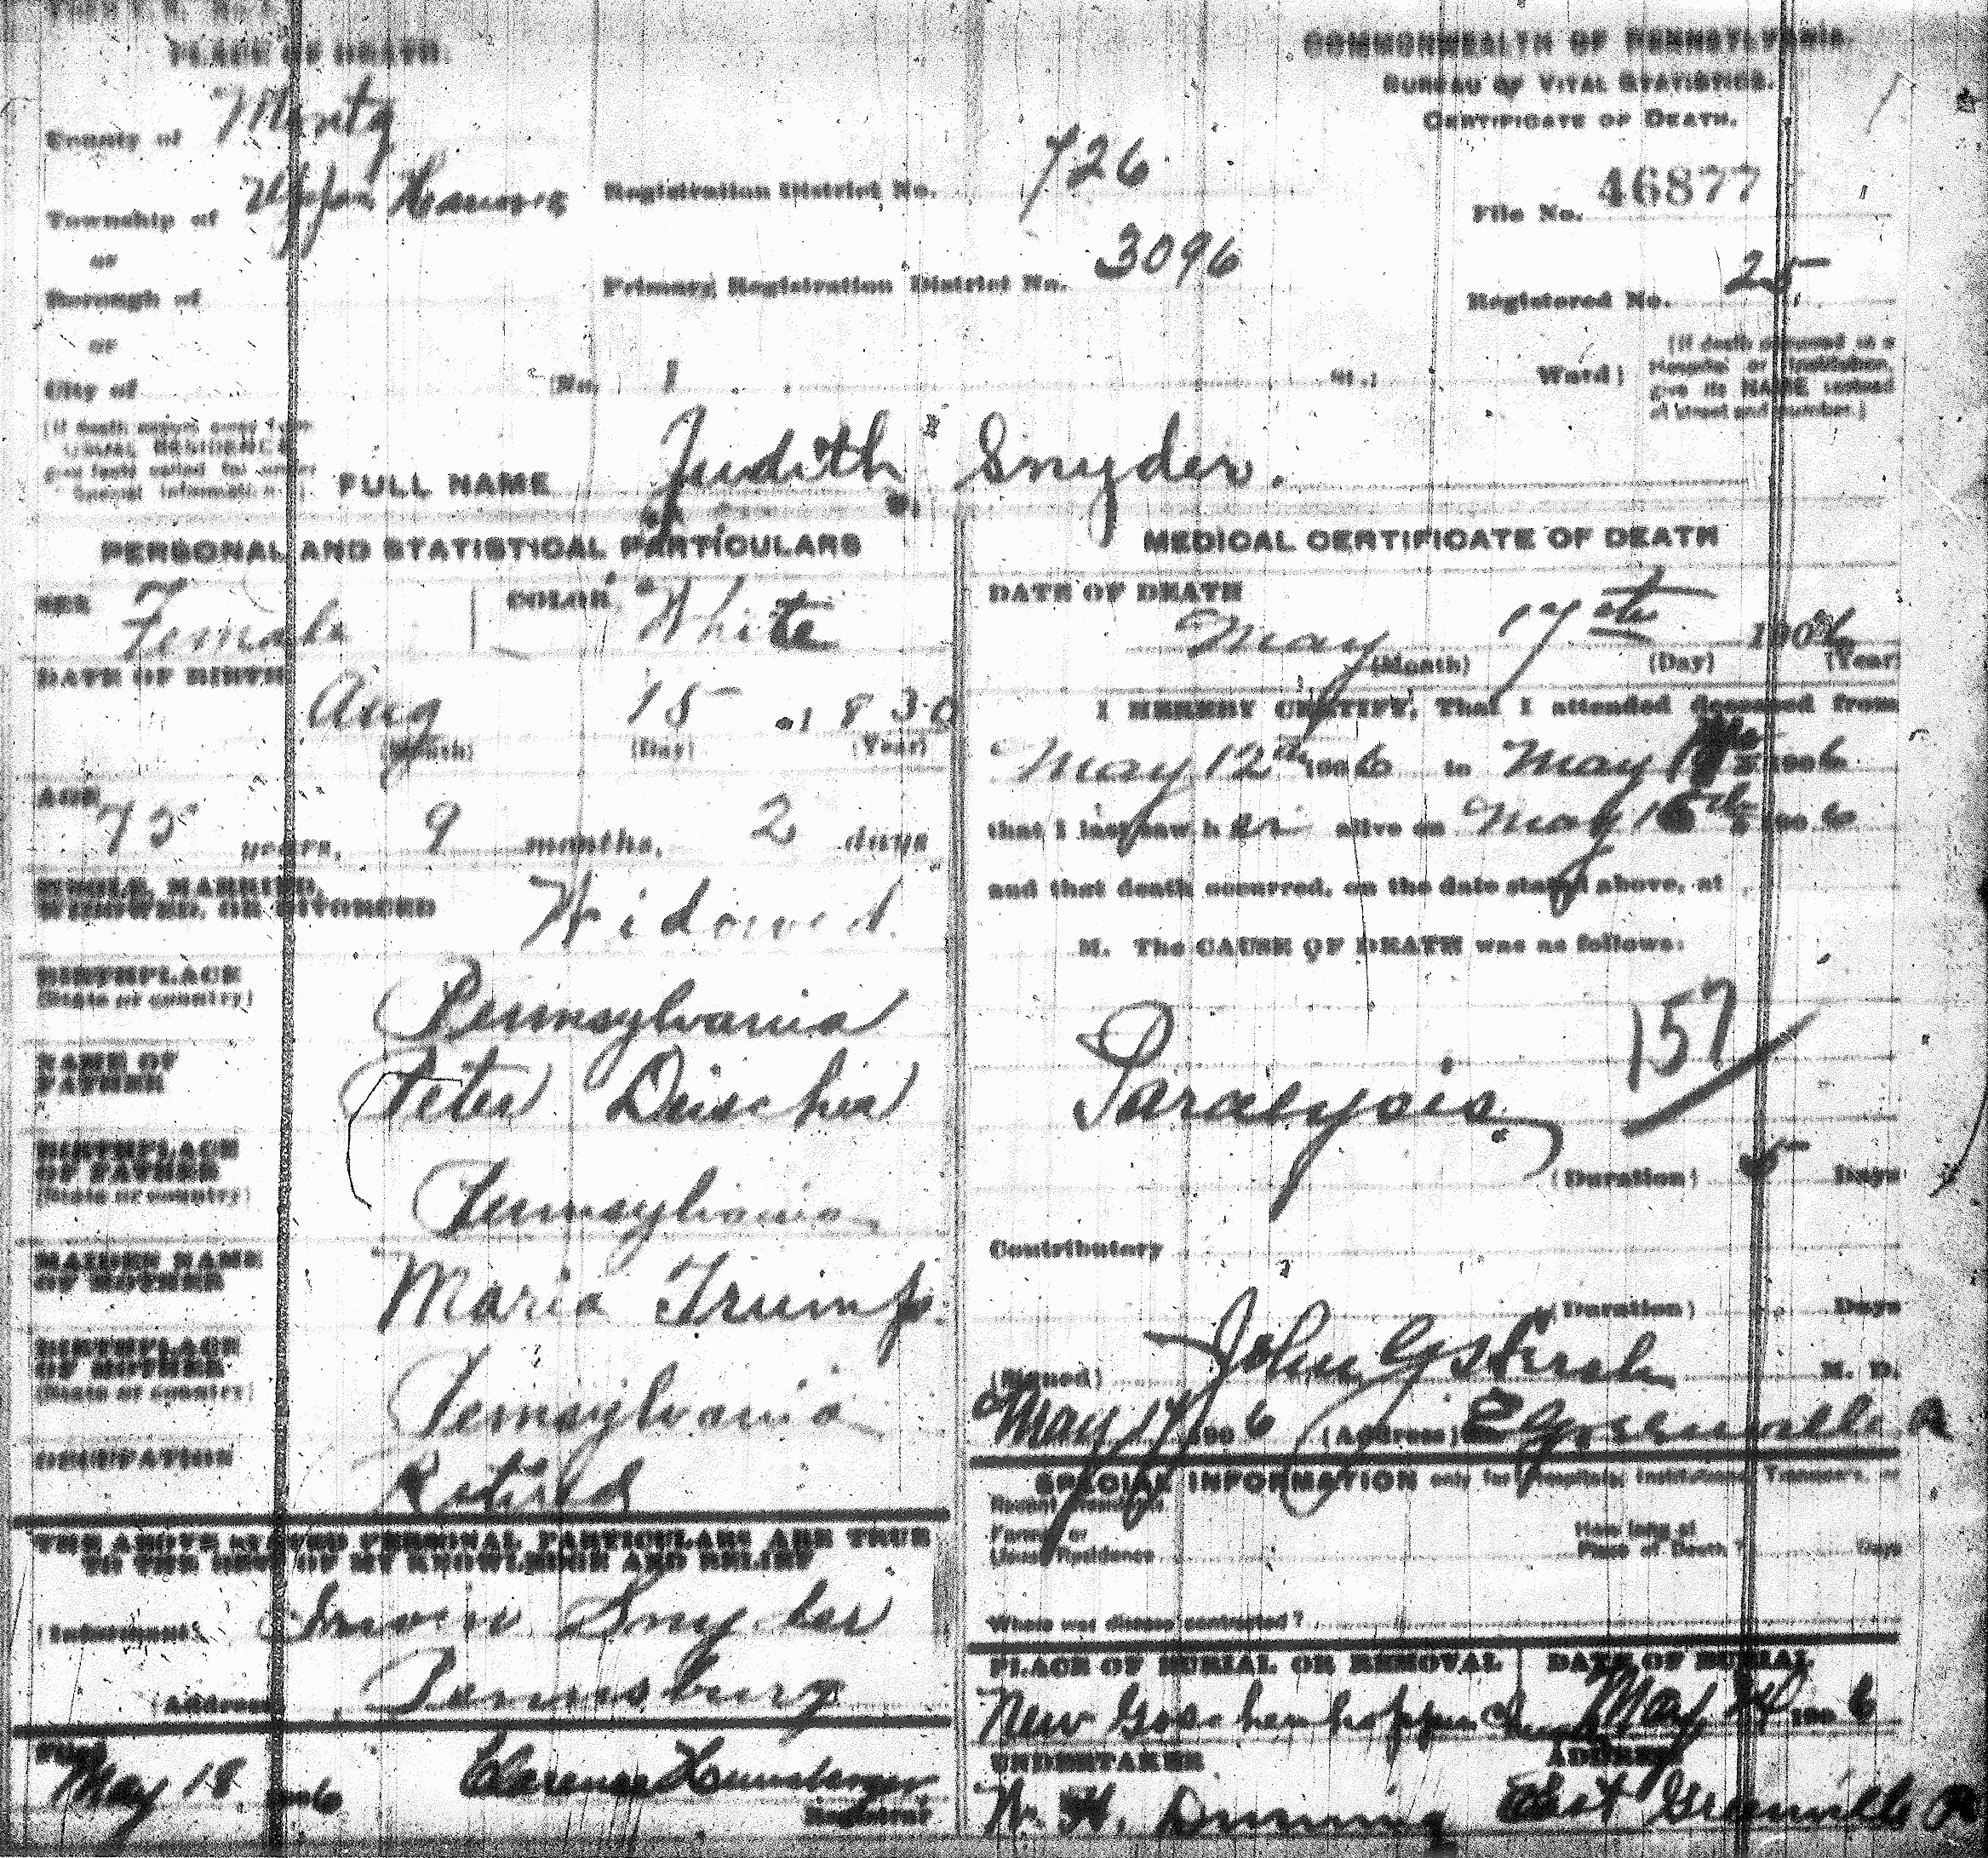 PLACE OF DEATH.
County of Montg
Township of Upper Hanover
or
Borough of
or
City of
(If death occurs away from
USUAL RESIDENCE
give facts called for under
Special Information.)
COMMONWEALTH OF PENNSYLVANIA.
BUREAU OF VITAL STATISTICS.
CERTIFICATE OF DEATH.
Registration District No. 726
File No. 46877
Primary Registration District No. 3096
Registered No. 25
(No. 1 St.; Ward)
(If death occurred in a
Hospital or Institution,
give its NAME instead
of street and number.)
FULL NAME Judith Snyder.
PERSONAL AND STATISTICAL PARTICULARS
SEX Female COLOR White
DATE OF BIRTH
Aug 15 1830
(Month) (Day) (Year)
AGE
75 years, 9 months, 2 days
SINGLE, MARRIED,
WIDOWED, OR DIVORCED Widowed
BIRTHPLACE
(State or country) Pennsylvania
NAME OF
FATHER Peter
BIRTHPLACE
OF FATHER
(State or country) Pennsylvania
MAIDEN NAME
OF MOTHER Maria Trump
BIRTHPLACE
OF MOTHER
(State or country) Pennsylvania
OCCUPATION Retired
THE ABOVE STATED PERSONAL PARTICULARS ARE TRUE
TO THE BEST OF MY KNOWLEDGE AND BELIEF
(Informant) Irwin Snyder
(Address) Pennsburg
Filed
May 18 1906 Clarence Hunsberger
Registrar
MEDICAL CERTIFICATE OF DEATH
DATE OF DEATH
May 17th 1906
(Month) (Day) (Year)
I HEREBY CERTIFY, That I attended deceased from
May 12th 1906 to May 1906
that I last saw her alive on May 16th 1906
and that death occurred, on the date stated above, at
M. The CAUSE OF DEATH was as follows:
157
Paralysis
(Duration) 5 Days
Contributory
(Duration) Days
(Signed) John M. D.
May 17 1906 (Address) E Greenville Pa
SPECIAL INFORMATION only for Hospitals, Institutions, Transients, or
Recent Residents.
Former or
Usual Residence
How long at
Place of Death? Days
Where was disease contracted?
PLACE OF BURIAL OR REMOVAL DATE OF BURIAL
New Goschenhoppen May 1906
UNDERTAKER ADDRESS
East Greenville Pa